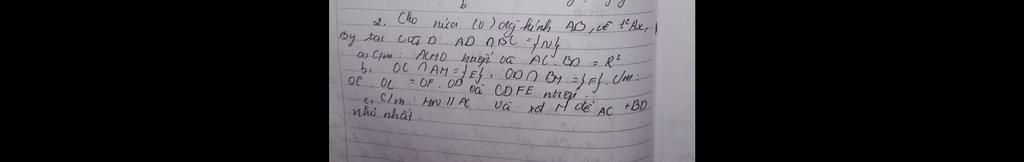 b
2. Cho nửa (O) đg kính AB, vẽ t² Ax,
By tại C và D. AD ∩ BC = {N}
a, C/m: ACMO nhiếp và AC. BD = R²
b, OC ∩ AM = {E}, OD ∩ BM = {F}. C/m:
OE. OC = OF. OD và CDFE nhiếp.
c, C/m: MN // AC và xđ M để AC + BD
nhỏ nhất